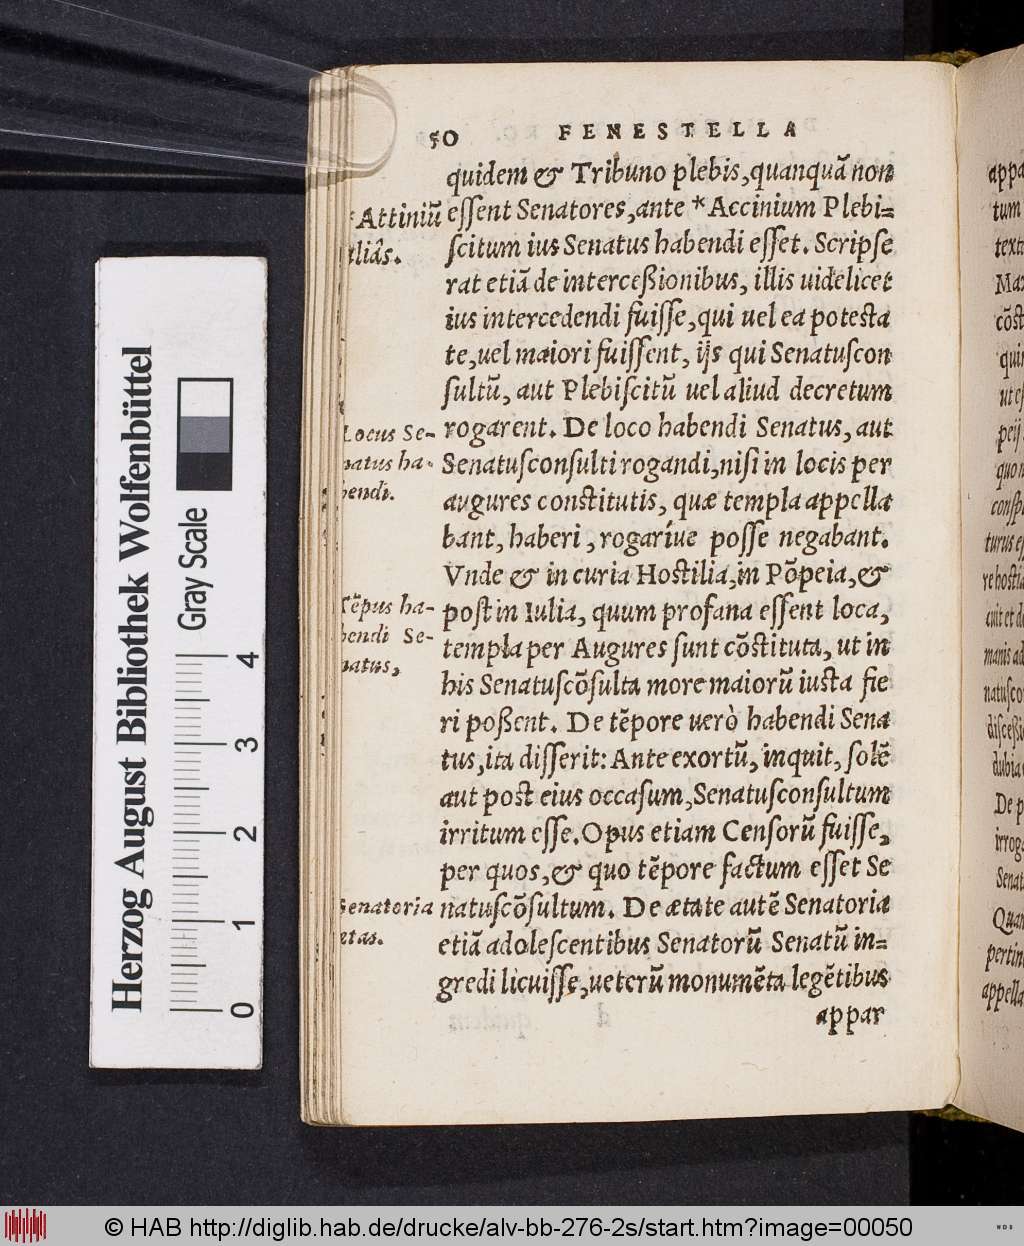 50 FENESTELLA
quidem & Tribuno plebis, quanquã non
essent Senatores, ante *Accinium Plebi=
scitum ius Senatus habendi esset. Scripse
rat etiã de intercessionibus, illis uidelicet
ius intercedendi fuisse, qui uel ea potesta
te, uel maiori fuissent, ijs qui Senatuscon
sultũ, aut Plebiscitũ uel aliud decretum
rogarent. De loco habendi Senatus, aut
Senatusconsulti rogandi, nisi in locis per
augures constitutis, quæ templa appella
bant, haberi, rogaríue posse negabant.
Vnde & in curia Hostilia, in Põpeia, &
post in Iulia, quum profana essent loca,
templa per Augures sunt cõstituta, ut in
his Senatuscõsulta more maiorũ iusta fie
ri possent. De tẽpore uerò habendi Sena
tus, ita disserit: Ante exortũ, inquit, solẽ
aut post eius occasum, Senatusconsultum
irritum esse. Opus etiam Censorũ fuisse,
per quos, & quo tẽpore factum esset Se
natuscõsultum. De ætate autẽ Senatoria
etiã adolescentibus Senatorũ Senatũ in=
gredi licuisse, ueterũ monumẽta legẽtibus
appar
*Attiniũ
aliâs.
Locus Se-
natus ha-
bendi.
Tẽpus ha-
bendi Se-
natus,
Senatoria
ætas.
Herzog August Bibliothek Wolfenbüttel
Gray Scale
0 1 2 3 4
© HAB http://diglib.hab.de/drucke/alv-bb-276-2s/start.htm?image=00050